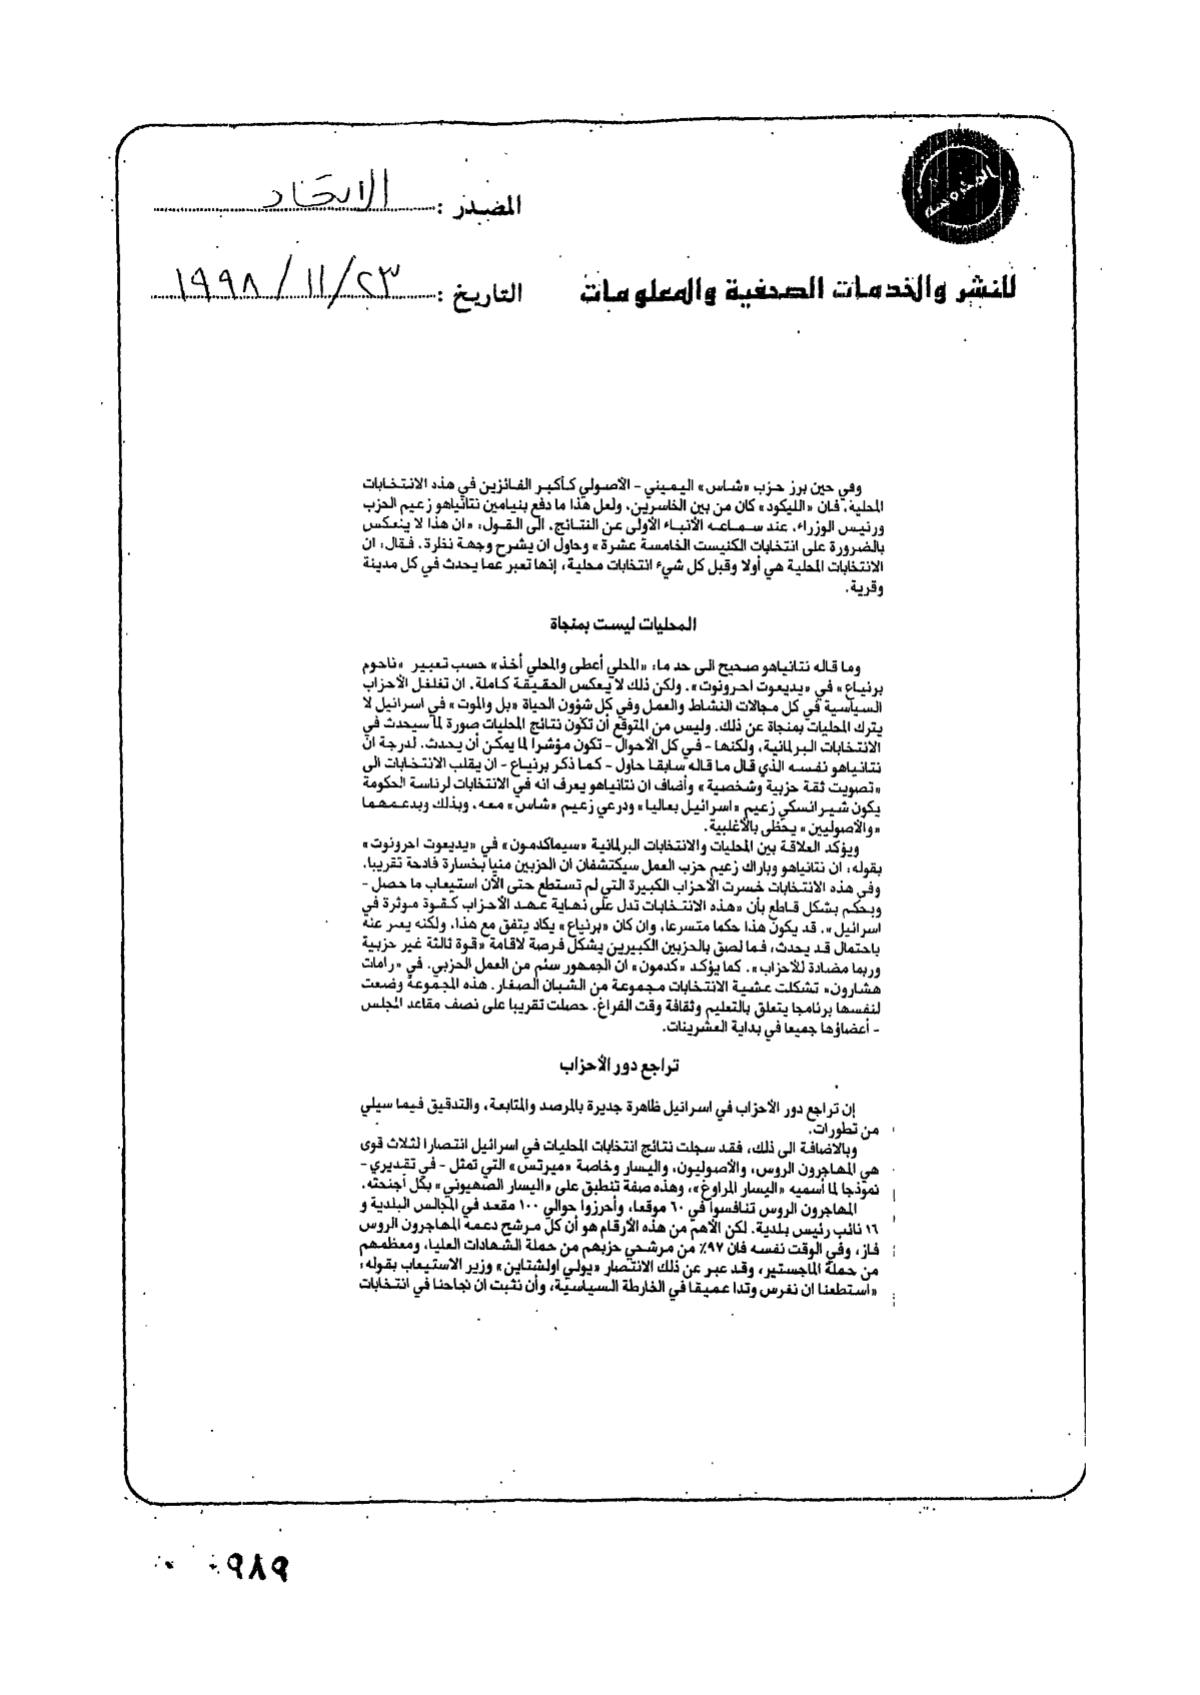 المحروسة
المصدر : الاتحاد
للنشر والخدمات الصحفية والمعلومات
التاريخ : ٢٣/ ١١/ ١٩٩٨
وفي حين برز حزب «شاس» اليميني - الأصولي كأكبر الفائزين في هذه الانتخابات
المحلية، فان «الليكود» كان من بين الخاسرين، ولعل هذا ما دفع بنيامين نتانياهو زعيم الحزب
ورئيس الوزراء، عند سماعه الأنباء الأولى عن النتائج، الى القول: «ان هذا لا ينعكس
بالضرورة على انتخابات الكنيست الخامسة عشرة» وحاول ان يشرح وجهة نظرة. فقال: ان
الانتخابات المحلية هي أولا وقبل كل شيء انتخابات محلية، إنها تعبر عما يحدث في كل مدينة
وقرية.
المحليات ليست بمنجاة
وما قاله نتانياهو صحيح الى حد ما: «المحلي أعطى والمحلي أخذ» حسب تعبير «ناحوم
برنياع» في «يديعوت احرونوت». ولكن ذلك لا يعكس الحقيقة كاملة. ان تغلغل الأحزاب
السياسية في كل مجالات النشاط والعمل وفي كل شؤون الحياة «بل والموت» في اسرائيل لا
يترك المحليات بمنجاة عن ذلك. وليس من المتوقع أن تكون نتائج المحليات صورة لما سيحدث في
الانتخابات البرلمانية، ولكنها - في كل الأحوال - تكون مؤشرا لما يمكن أن يحدث. لدرجة ان
نتانياهو نفسه الذي قال ما قاله سابقا حاول - كما ذكر برنياع - ان يقلب الانتخابات الى
«تصويت ثقة حزبية وشخصية» وأضاف ان نتانياهو يعرف انه في الانتخابات لرئاسة الحكومة
يكون شيرانسكي زعيم «اسرائيل بعاليا» ودرعي زعيم «شاس» معه، وبذلك وبدعمهما
«والأصوليين» يحظى بالأغلبية.
ويؤكد العلاقة بين المحليات والانتخابات البرلمانية «سيماكدمون» في «يديعوت احرونوت»
بقوله: ان نتانياهو وباراك زعيم حزب العمل سيكتشفان ان الحزبين منيا بخسارة فادحة تقريبا،
وفي هذه الانتخابات خسرت الأحزاب الكبيرة التي لم تستطع حتى الآن استيعاب ما حصل -
ويحكم بشكل قاطع بأن «هذه الانتخابات تدل على نهاية عهد الأحزاب كقوة موثرة في
اسرائيل». قد يكون هذا حكما متسرعا، وان كان «برنياع» يكاد يتفق مع هذا، ولكنه يعبر عنه
باحتمال قد يحدث، فما لصق بالحزبين الكبيرين يشكل فرصة لاقامة «قوة ثالثة غير حزبية
وربما مضادة للأحزاب». كما يؤكد «كدمون» ان الجمهور سئم من العمل الحزبي. في «رامات
هشارون» تشكلت عشية الانتخابات مجموعة من الشبان الصغار. هذه المجموعة وضعت
لنفسها برنامجا يتعلق بالتعليم وثقافة وقت الفراغ. حصلت تقريبا على نصف مقاعد المجلس
- أعضاؤها جميعا في بداية العشرينات.
تراجع دور الأحزاب
إن تراجع دور الأحزاب في اسرائيل ظاهرة جديرة بالمرصد والمتابعة، والتدقيق فيما سيلي
من تطورات.
وبالاضافة الى ذلك، فقد سجلت نتائج انتخابات المحليات في اسرائيل انتصارا لثلاث قوى
هي المهاجرون الروس، والأصوليون، واليسار وخاصة «ميرتس» التي تمثل - في تقديري-
نموذجا لما أسميه «اليسار المراوغ»، وهذه صفة تنطبق على «اليسار الصهيوني» بكل أجنحته.
المهاجرون الروس تنافسوا في ٦٠ موقعا، وأحرزوا حوالي ١٠٠ مقعد في المجالس البلدية و
١٦ نائب رئيس بلدية. لكن الأهم من هذه الأرقام هو أن كل مرشح دعمه المهاجرون الروس
فاز، وفي الوقت نفسه فان ٩٧٪ من مرشحي حزبهم من حملة الشهادات العليا، ومعظمهم
من حملة الماجستير، وقد عبر عن ذلك الانتصار «يولي اولشتاين» وزير الاستيعاب بقوله:
«استطعنا ان نغرس وتدا عميقا في الخارطة السياسية، وأن نثبت ان نجاحنا في انتخابات
٩٨٩